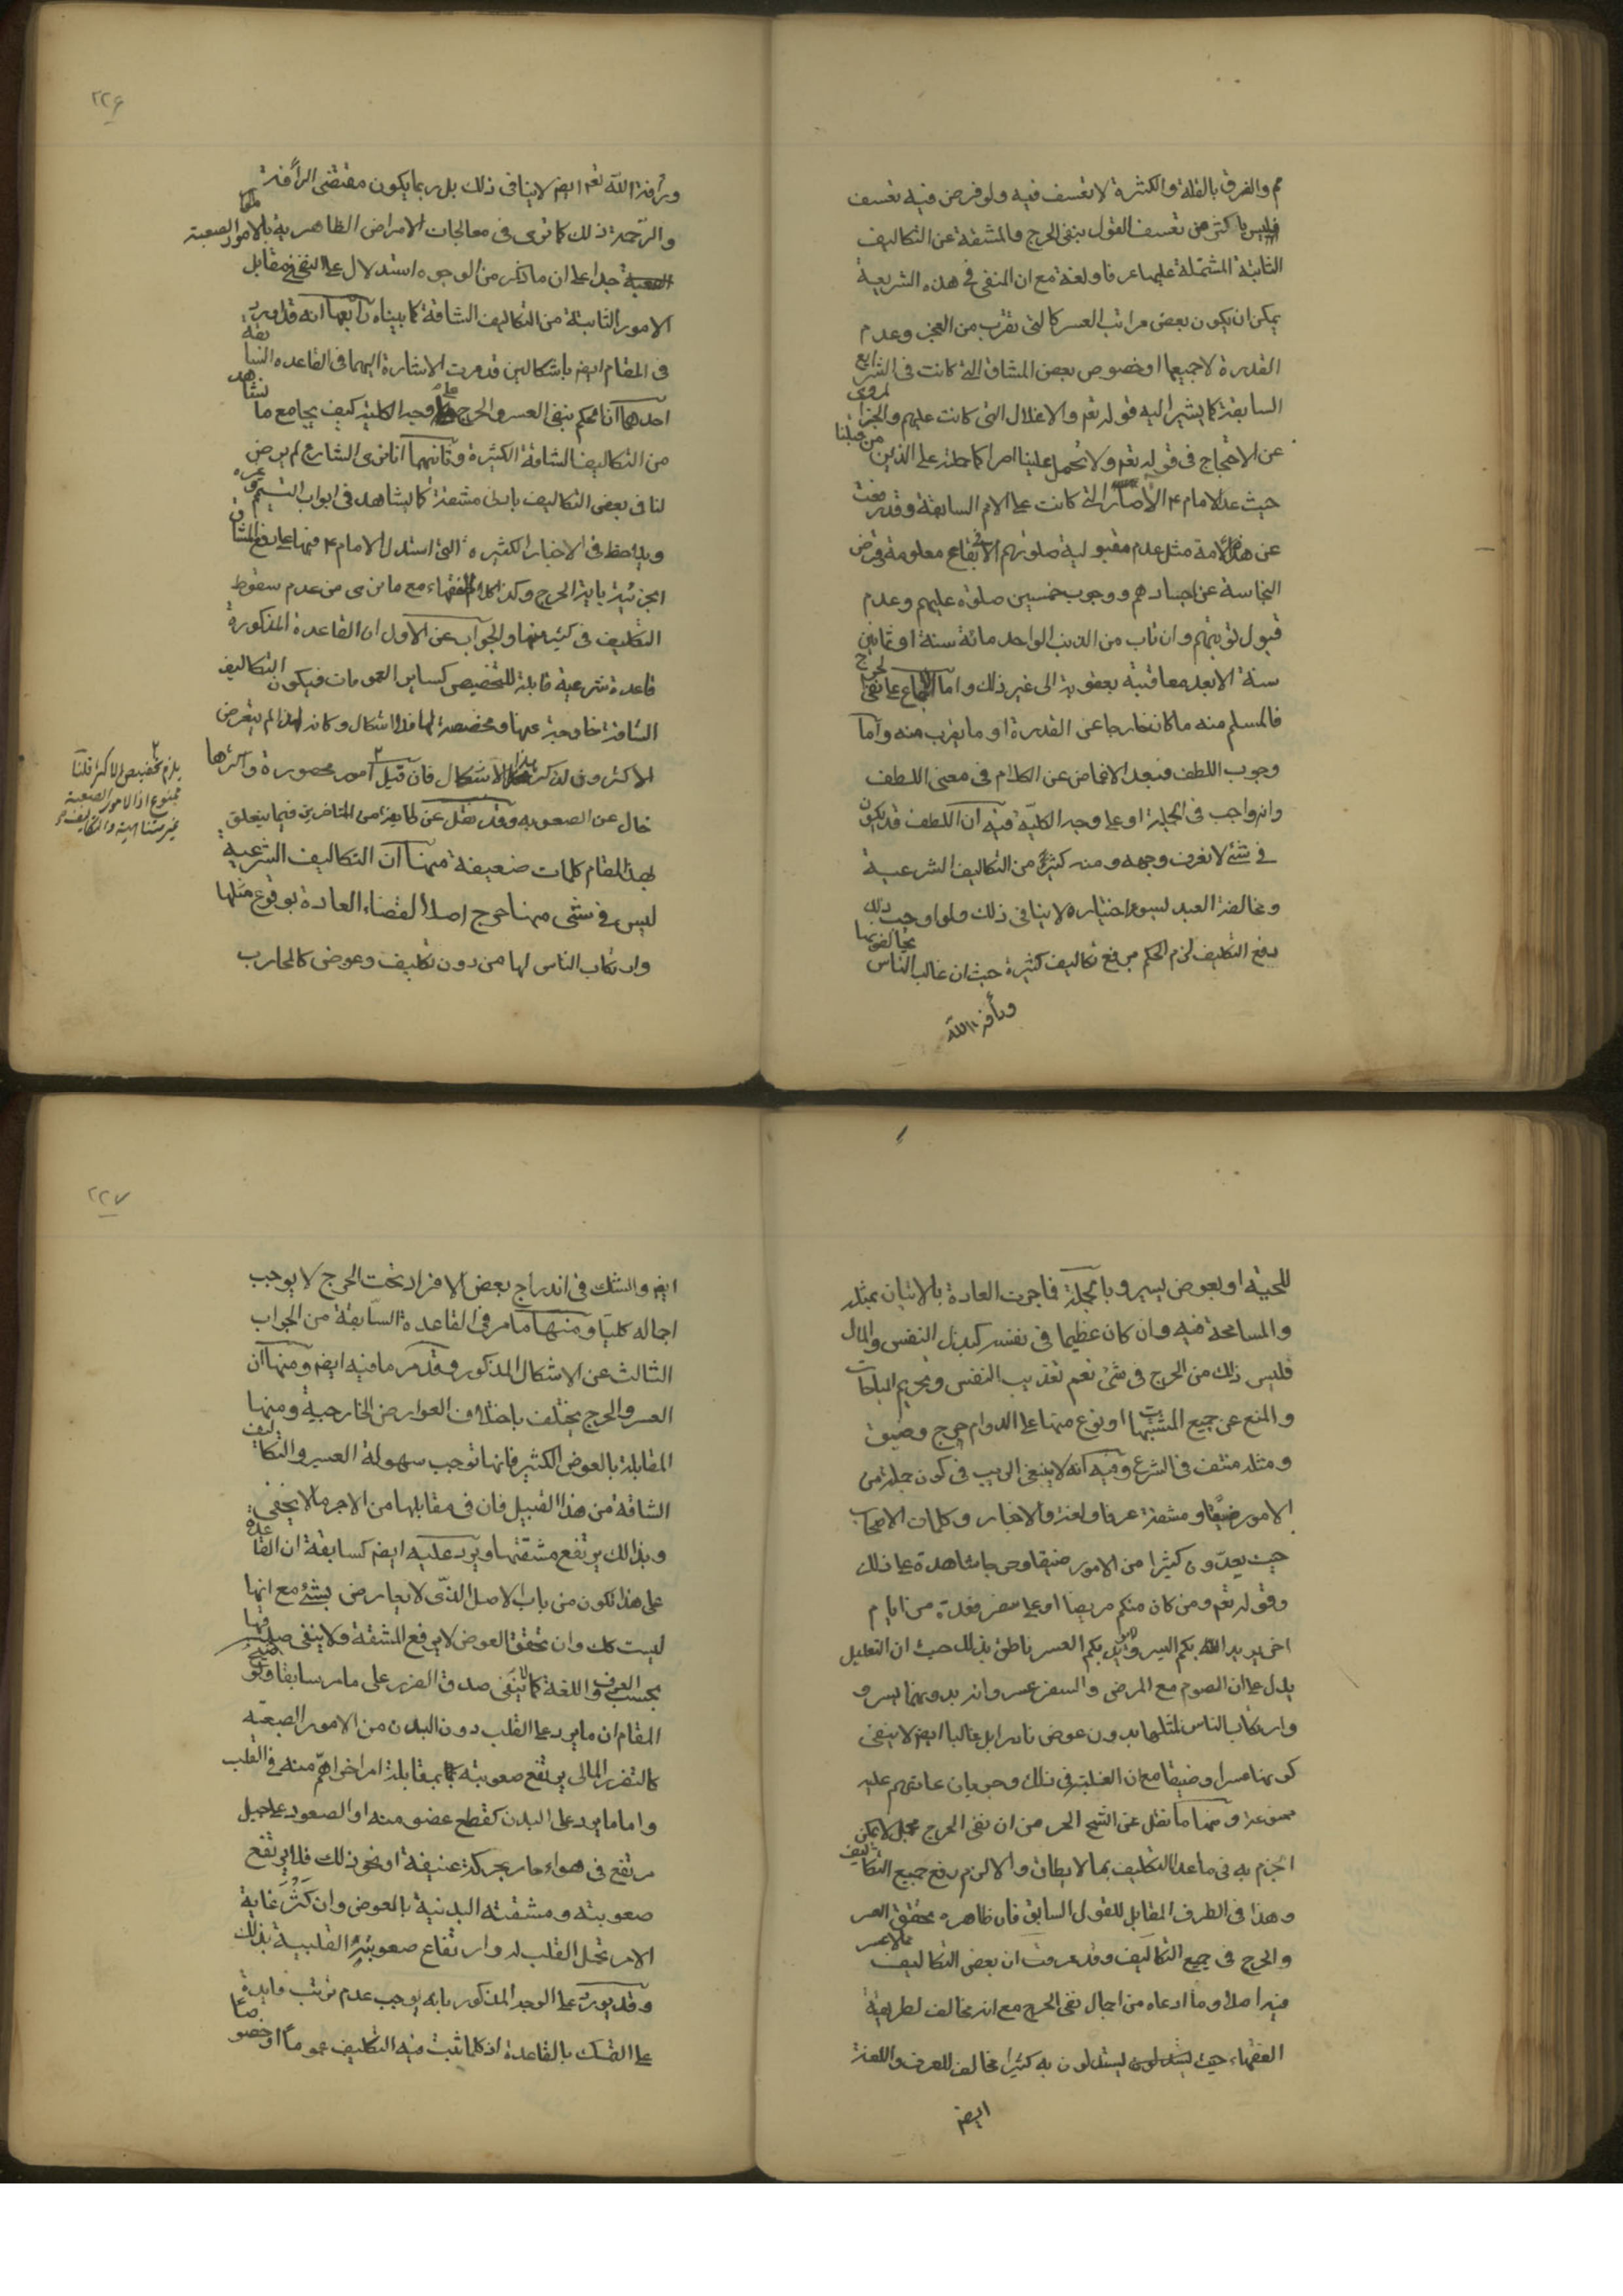 مم والفرق بالقلة والكثرة لا تعسف فيه ولو فرض فيه تعسف
فليس باكثر من تعسف القول بنفى الحرج والمشقة عن التكاليف
الثابتة المشتملة عليهما عرفا ولغة مع ان المنفى فى هذه الشريعة
يمكن ان يكون بعض مراتب العسر كالتى تقرب من العجز وعدم
القدرة لا جميعها او خصوص بعض المشاق التى كانت فى الشرايع
السابقة كما يشير اليه قوله تعم والاغلال التى كانت عليهم والخبر المروى
عن الاحتجاج فى قوله تعم ولا تحمل علينا اصرا كما حملته على الذين من قبلنا
حيث عد الامام ع الآصار التى كانت على الامم السابقة وقد رفعت
عن هذه الامة مثل عدم مقبولية صلوتهم الا فى بقاع معلومة وقرض
النجاسة عن اجسادهم ووجوب خمسين صلوة عليهم وعدم
قبول توبتهم وان تاب من الذنب الواحد مائة سنة او ثمانين
سنة الا بعد معاقبة بعقوبة الى غير ذلك واما الاجماع على نفى الحرج
فالمسلم منه ما كان خارجا عن القدرة او ما يقرب منه واما
وجوب اللطف فبعد الاغماض عن الكلام فى معنى اللطف
وانه واجب فى الجملة او على وجه الكلية فيه ان اللطف قد يكون
فى شئ لا نعرف وجهه ومنه كثير من التكاليف الشرعية
ومخالفة العبد لسوء اختياره لا ينافى ذلك ولو اوجب ذلك
رفع التكليف لزم الحكم برفع تكاليف كثيرة حيث ان غالب الناس يخالفونها
ورأفة الله
٢٢۶
ورأفة الله تعم ايضا لا ينافى ذلك بل ربما يكون مقتضى الرأفة
والرحمة ذلك كما ترى فى معالجات الامراض الظاهرية بالامور الصعبة
جدا على ان ما ذكر من الوجوه استدلال على النفى فى مقابل
الامور الثابتة من التكاليف الشاقة كما بيناه رابعها انه قد اورد
فى المقام ايضا باشكالين قد مرت الاشارة اليهما فى القاعدة السابقة
احدهما ان الحكم بنفى العسر والحرج على وجه الكلية كيف يجامع ما نشاهد
من التكاليف الشاقة الكثيرة وثانيهما انا نرى الشارع لم يرض
لنا فى بعض التكاليف بادنى مشقة كما يشاهد فى ابواب التيمم وغيره
ويلاحظ فى الاخبار الكثيرة التى استدل الامام ع فيها على رفع المشاق
الجزئية باية الحرج وكذا كلام الفقهاء مع ما نرى من عدم سقوط
التكليف فى كثير منها والجواب عن الاول ان القاعدة المذكورة
قاعدة شرعية قابلة للتخصيص كساير العمومات فيكون التكاليف
الشاقة خارجة عنها ومخصصة لها فلا اشكال وكانه لهذا لم يتعرض
الاكثرون لذكر هذا الاشكال فان قيل امور محصورة واكثرها
خال عن الصعوبة وقد نقل عن طايفة من المتاخرين فيما يتعلق
بهذا المقام كلمات ضعيفة منها ان التكاليف الشرعية
ليس فى شئ منها حرج اصلا لقضاء العادة بوقوع مثلها
وارتكاب الناس لها من دون تكليف وعوض كالمحارب
يلزم تخصيص الاكثر قلنا
ممنوع اذ الامور الصعبة
غير متناهية والتكاليف
للحمية او بعوض يسير وبالجملة فما جرت العادة بالاتيان بمثله
والمسامحة فيه وان كان عظيما فى نفسه كبذل النفس والمال
فليس ذلك من الحرج فى شئ نعم تعذيب النفس وتحريم المباحات
والمنع عن جميع المشتبهات او نوع منها على الدوام حرج وضيق
ومثله منتف فى الشرع وفيه انه لا ينبغى الريب فى كون جملة من
الامور ضيقا ومشقة عرفا ولغة والاخبار وكلمات الاصحاب
حيث يعدون كثيرا من الامور ضيقا وحرجا شاهدة على ذلك
وقوله تعم ومن كان منكم مريضا او على سفر فعدة من ايام
اخر يريد الله بكم اليسر ولا يريد بكم العسر ناطق بذلك حيث ان التعليل
يدل على ان الصوم مع المرض والسفر عسر وانه بدونهما يسر و
وارتكاب الناس لمثلهما بدون عوض نادرا بل غالبا ايضا لا ينفى
كونهما عسرا وضيقا مع ان الغلبة فى ذلك وجريان عادتهم عليه
ممنوعة ومنها ما نقل عن الشيخ الحر من ان نفى الحرج مجمل لا يمكن
الجزم به فى ما عدا التكليف بما لا يطاق والا لزم رفع جميع التكاليف
وهذا فى الطرف المقابل للقول السابق فان ظاهره تحقق العسر
والحرج فى جميع التكاليف وقد عرفت ان بعض التكاليف مما لا عسر
فيه اصلا وما ادعاه من اجمال نفى الحرج مع انه مخالف لطريقة
الفقهاء حيث يستدلون به كثيرا مخالف للعرف واللغة
ايضا
٢٢٧
ايضا والشك فى اندراج بعض الافراد تحت الحرج لا يوجب
اجماله كليا ومنها ما مر فى القاعدة السابقة من الجواب
الثالث عن الاشكال المذكور وقد مر ما فيه ايضا ومنها ان
العسر والحرج يختلف باختلاف العوارض الخارجية ومنها
المقابلة بالعوض الكثير فانها توجب سهولة العسير والتكاليف
الشاقة من هذا القبيل فان فى مقابلها من الاجر ما لا يخفى
وبذلك يرتفع مشقتها ويرد عليه ايضا كسابقه ان القاعدة
على هذا تكون من باب الاصل الذى لا يعارض بشئ مع انها
ليست كك وان تحقق العوض لا يرفع المشقة ولا ينفى صدقها
بحسب العرف واللغة كما لا ينفى صدق الضرر على ما مر سابقا
المقام ان ما يرد على القلب دون البدن من الامور الصعبة
كالتضرر المالى يرتفع صعوبته بمقابلة امر اخر اهم منه فى القلب
واما ما يرد على البدن كقطع عضو منه او الصعود على جبل
مرتفع فى هواء حار بحركة عنيفة او نحو ذلك فلا يرتفع
صعوبته ومشقته البدنية بالعوض وان كثر غاية
الامر تحمل القلب له وارتفاع صعوبته القلبية بذلك
وقد يورد على الوجه المذكور بانه يوجب عدم ترتب فايدة
على التمسك بالقاعدة اذ كلما ثبت فيه التكليف عموما او خصوصا